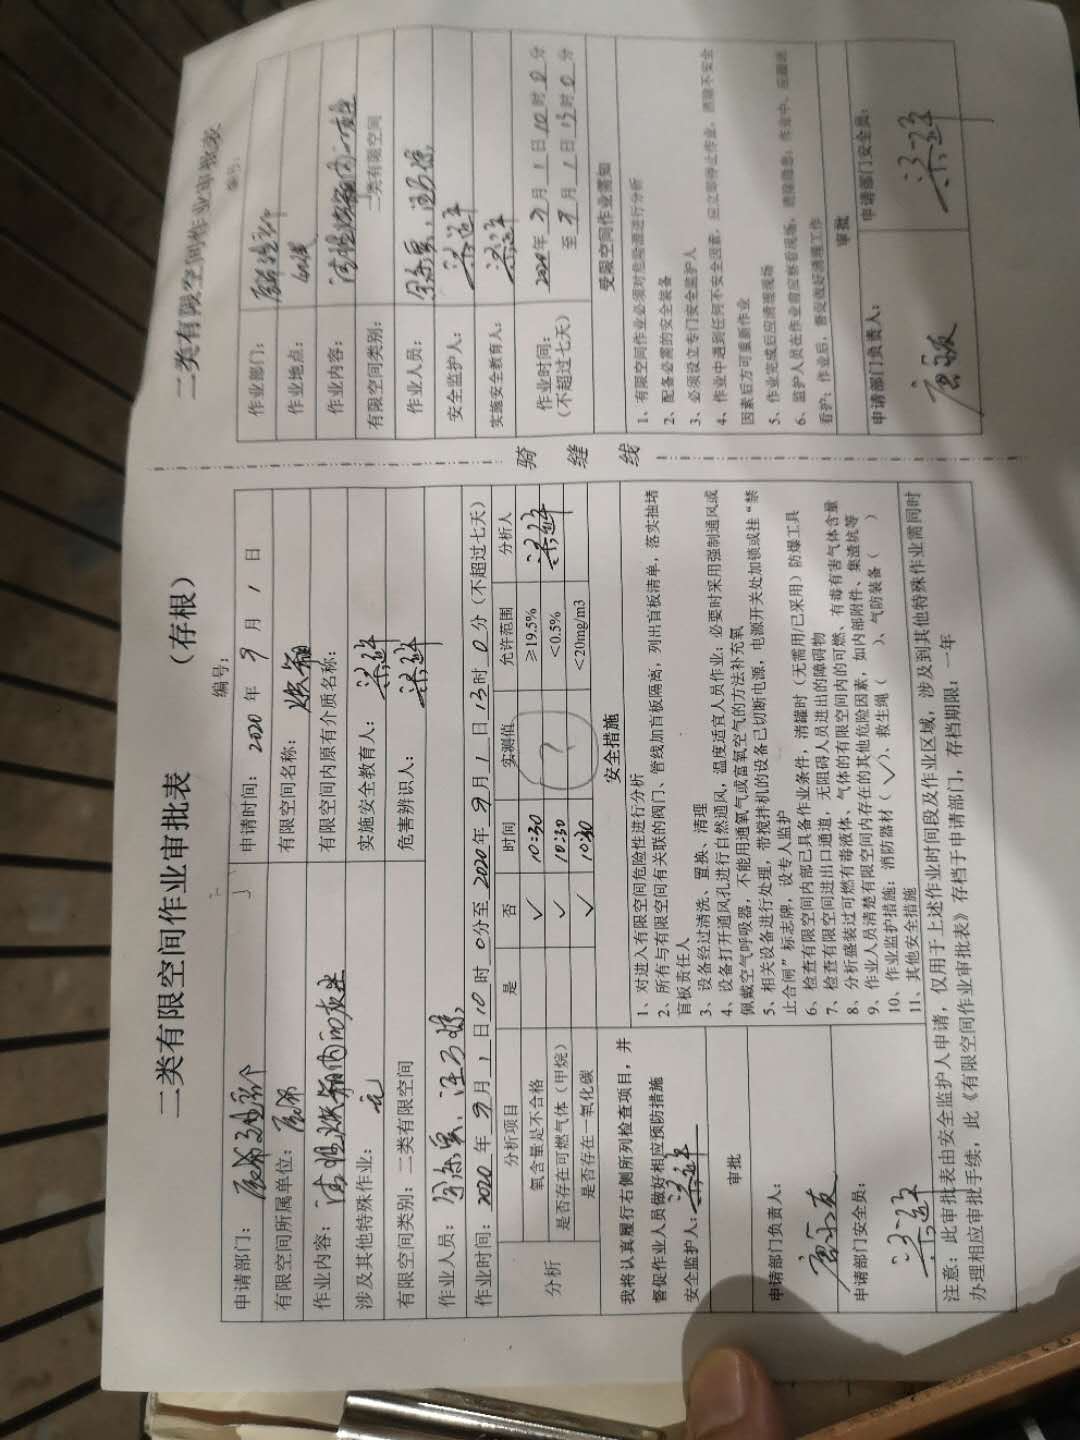 二类有限空间作业审批表（存根）
编号：
申请部门：
申请时间：2020 年 9 月 1 日
有限空间所属单位：
有限空间名称：燃烧
作业内容：清理燃烧箱内的灰尘
有限空间内原有介质名称：
涉及其他特殊作业：无
实施安全教育人：
有限空间类别：二类有限空间
危害辨识人：
作业人员：
作业时间：2020 年 9 月 1 日 10 时 0 分至 2020 年 9 月 1 日 13 时 0 分（不超过七天）
分析 分析项目 是 否 时间 实测值 允许范围 分析人
氧含量是不合格 ✓ 10:30 ≥19.5%
是否存在可燃气体（甲烷） ✓ 10:30 ? <0.5%
是否存在一氧化碳 ✓ 10:30 <20mg/m3
我将认真履行右侧所列检查项目，并
督促作业人员做好相应预防措施
安全监护人：
审批
申请部门负责人：
申请部门安全员：
安全措施
1、对进入有限空间危险性进行分析
2、所有与有限空间有关联的阀门、管线加盲板隔离，列出盲板清单，落实抽堵
盲板责任人
3、设备经过清洗、置换、清理
4、设备打开通风孔进行自然通风，温度适宜人员作业；必要时采用强制通风或
佩戴空气呼吸器，不能用通氧气或富氧空气的方法补充氧
5、相关设备进行处理，带搅拌机的设备已切断电源，电源开关处加锁或挂“禁
止合闸”标志牌，设专人监护
6、检查有限空间内部已具备作业条件，清罐时（无需用/已采用）防爆工具
7、检查有限空间进出口通道，无阻碍人员进出的障碍物
8、分析盛装过可燃有毒液体、气体的有限空间内的可燃、有毒有害气体含量
9、作业人员清楚有限空间内存在的其他危险因素，如内部附件、集渣坑等
10、作业监护措施：消防器材（✓）、救生绳（ ）、气防装备（ ）
11、其他安全措施
注意：此审批表由安全监护人申请，仅用于上述作业时间段及作业区域，涉及到其他特殊作业需同时
办理相应审批手续，此《有限空间作业审批表》存档于申请部门，存档期限：一年
骑缝线
二类有限空间作业审批表
编号：
作业部门：
作业地点：
作业内容：
有限空间类别：二类有限空间
作业人员：
安全监护人：
实施安全教育人：
作业时间：
（不超过七天）
2020年 9 月 1 日 10 时 0 分
至 9 月 1 日 13 时 0 分
受限空间作业需知
1、有限空间作业必须对危险源进行分析
2、配备必需的安全装备
3、必须设立专门安全监护人
4、作业中遇到任何不安全因素，应立即停止作业，消除不安全
因素后方可重新作业
5、作业完成后应清理现场
6、监护人员在作业前应察看现场，消除隐患；作业中，应
看护；作业后，督促做好清理工作
审批
申请部门负责人：
申请部门安全员：